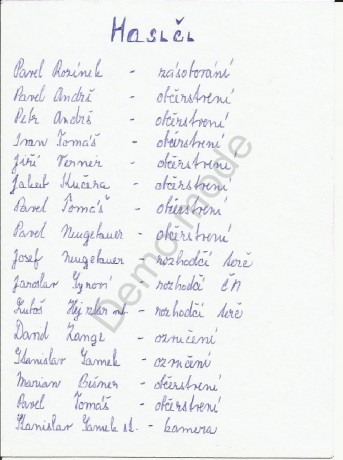 Hasiči
Pavel Rozínek - zásobování
Pavel Andrš - občerstvení
Petr Andrš - občerstvení
Ivan Tomáš - občerstvení
Jiří Verner - občerstvení
Jakub Kučera - občerstvení
Pavel Tomáš - občerstvení
Pavel Neugebauer - občerstvení
Josef Neugebauer - rozhodčí
Jaroslav - rozhodčí
Luboš Hejzlar ml. - rozhodčí
David Lange - označení
Stanislav Samek - označení
Marian - občerstvení
Pavel Tomáš - občerstvení
Stanislav Samek st. - kamera
Demo mode